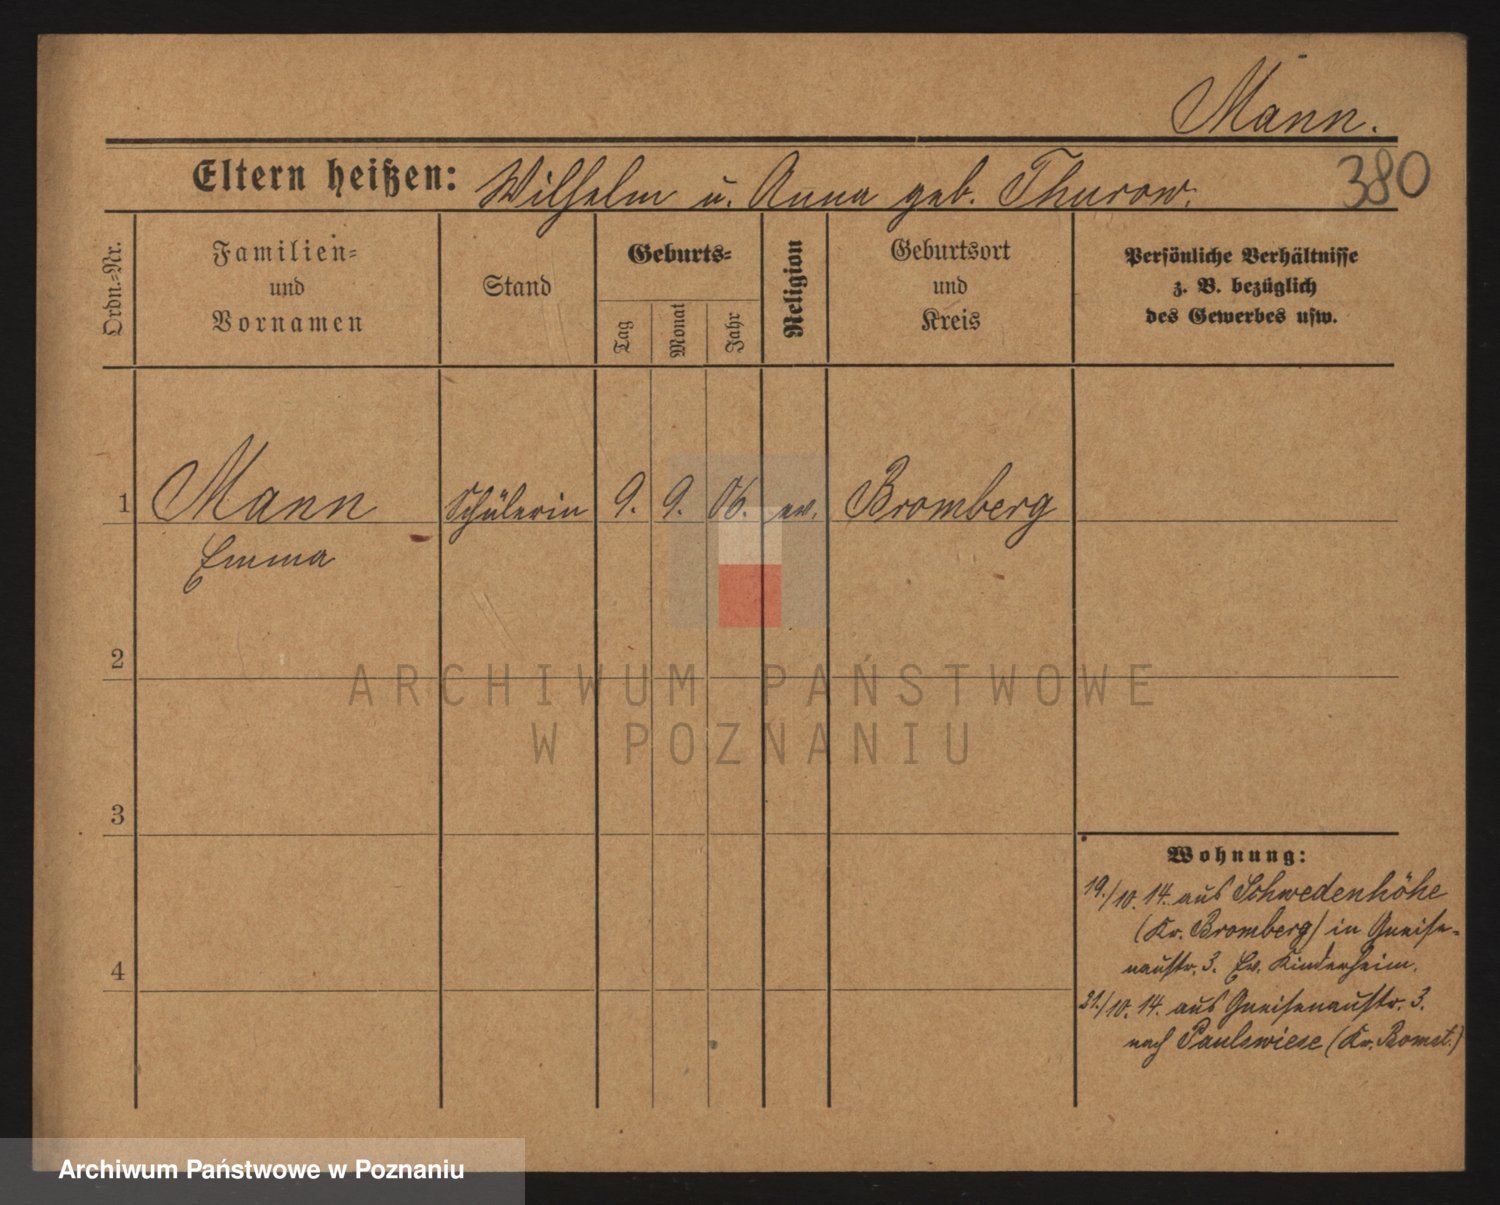 Mann.
Eltern heißen: Wilhelm u. Anna geb. Thurow.
380
Ordn.-Nr.
Familien-
und
Vornamen
Stand
Geburts-
Tag
Monat
Jahr
Religion
Geburtsort
und
Kreis
Persönliche Verhältnisse
z. B. bezüglich
des Gewerbes usw.
1 Mann Schülerin 9. 9. 06. ev. Bromberg
Emma
2
ARCHIWUM PAŃSTWOWE
W POZNANIU
3
Wohnung:
19./10. 14. aus Schwedenhöhe
(Kr. Bromberg) in Gneise-
naustr. 3. Ev. Kinderheim.
4
21./10. 14. aus Gneisenaustr. 3.
nach Paulswiese (Kr. Bomst.)
Archiwum Państwowe w Poznaniu